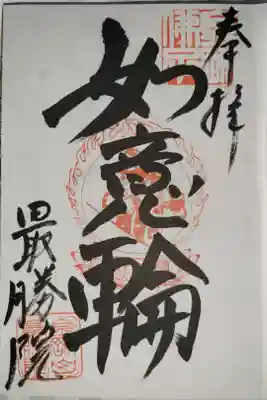 奉拝
如意輪
最勝院